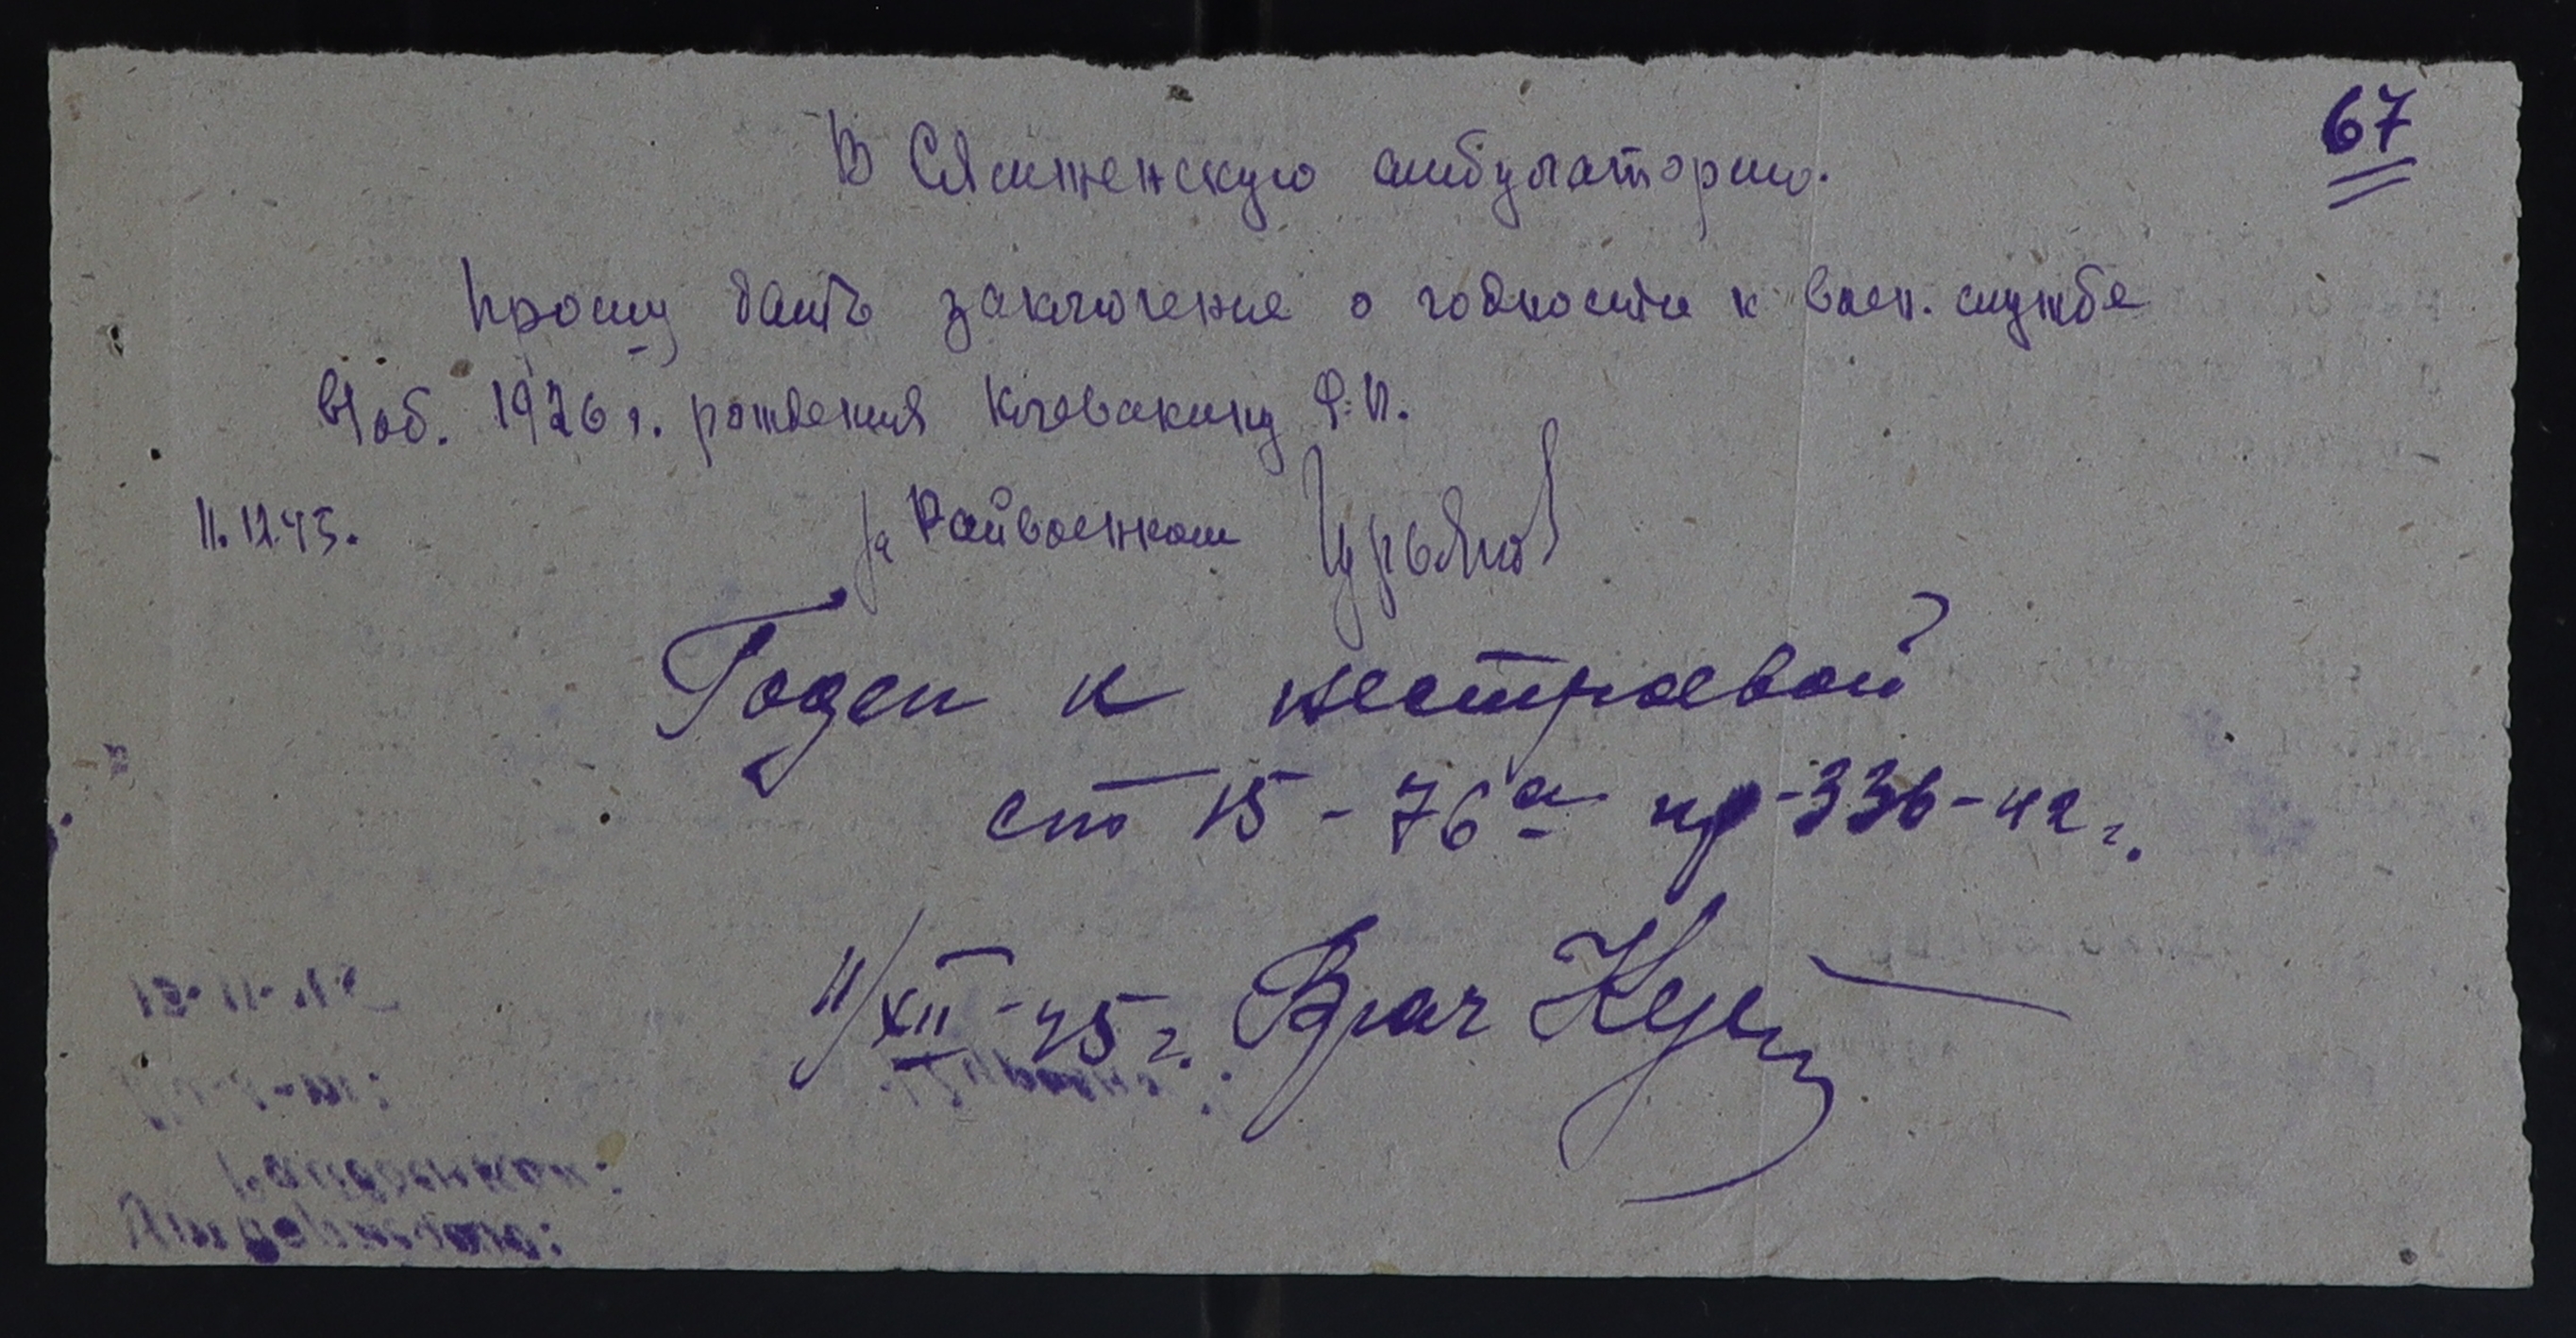 67
В Сямженскую амбулаторию.
Прошу дать заключение о годности к воен. службе
в/об. 1926 г. рождения Клевакину Ф.И.
11.12.45.
за Райвоенком Гурьянов
Годен к нестроевой
ст 15 - 76а пр-336-42 г.
11/XII-45 г. Врач